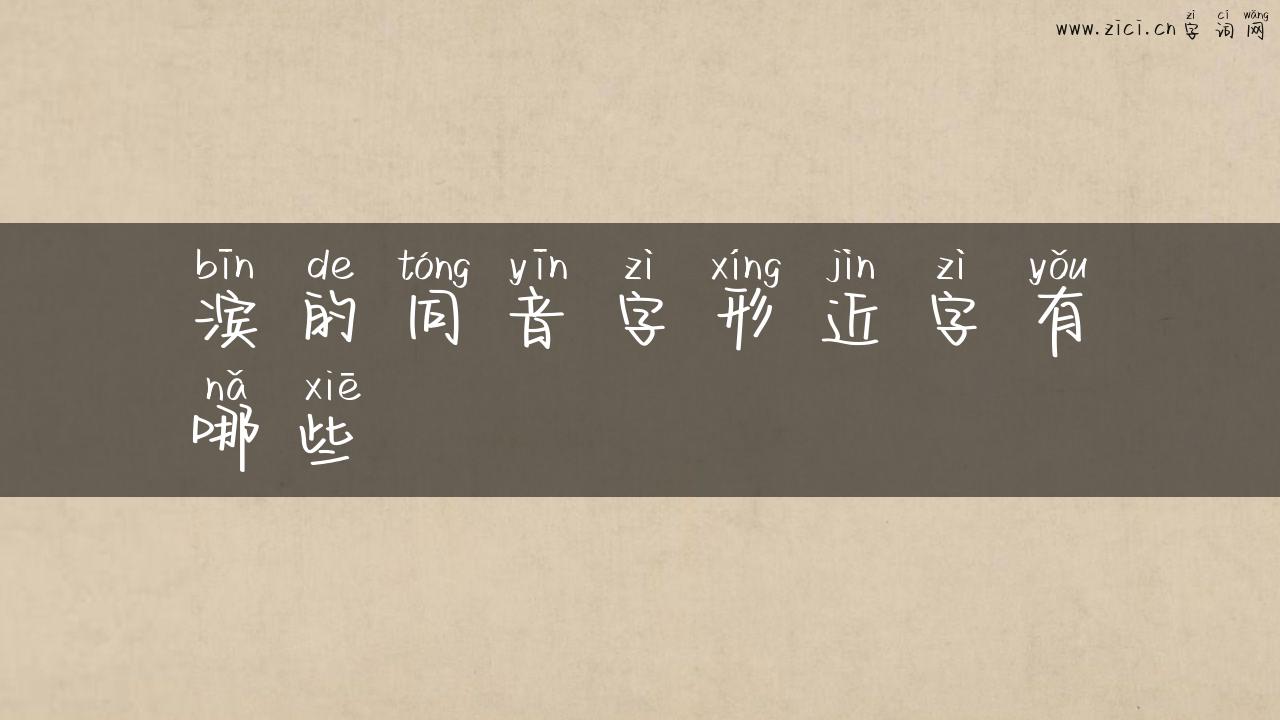 zì cí wǎng
www.zici.cn 字词网
bīn de tóng yīn zì xíng jìn zì yǒu
滨的同音字形近字有
nǎ xiē
哪些